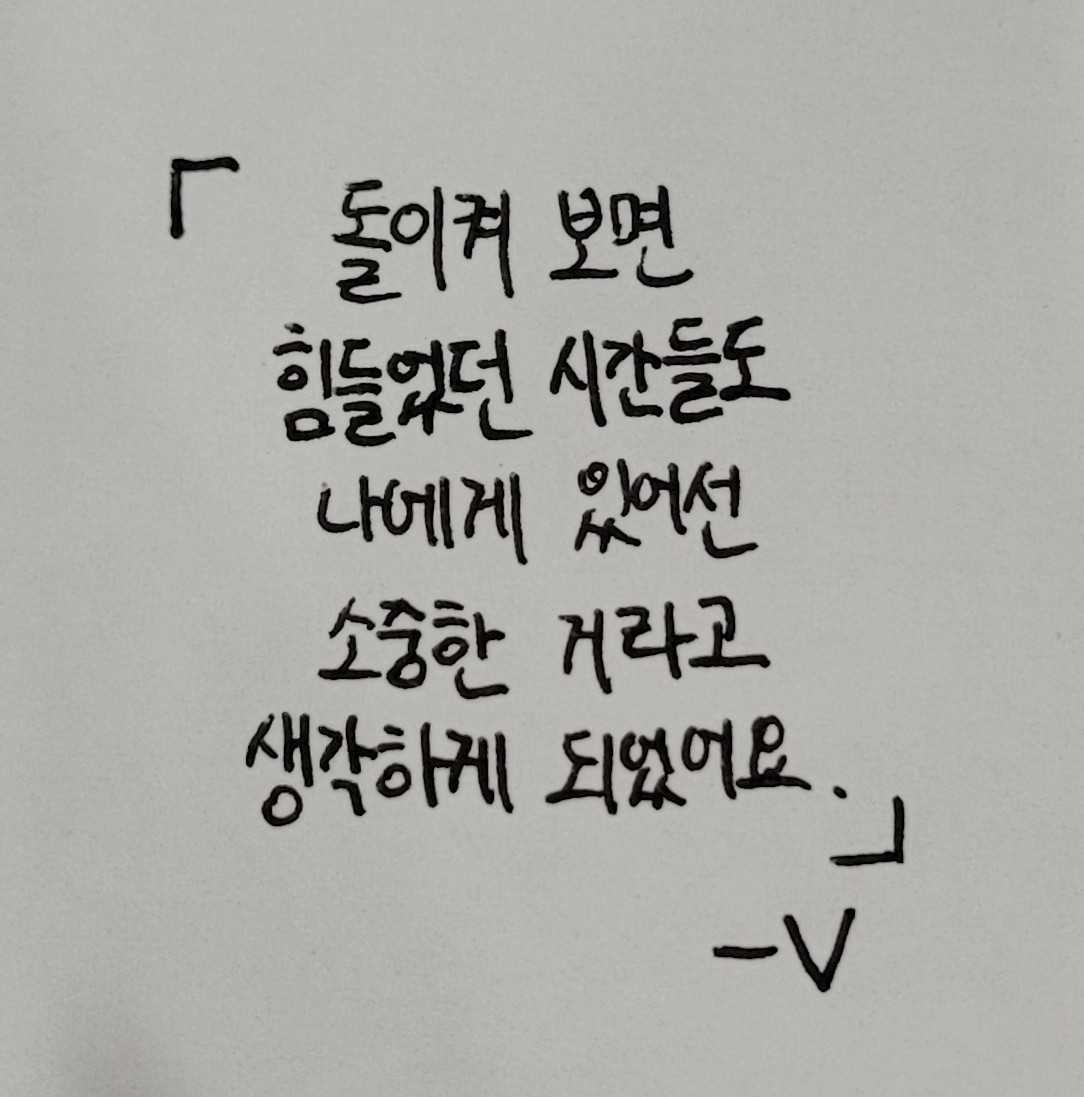 「 돌이켜 보면
힘들었던 시간들도
나에게 있어선
소중한 거라고
생각하게 되었어요. 」
-V